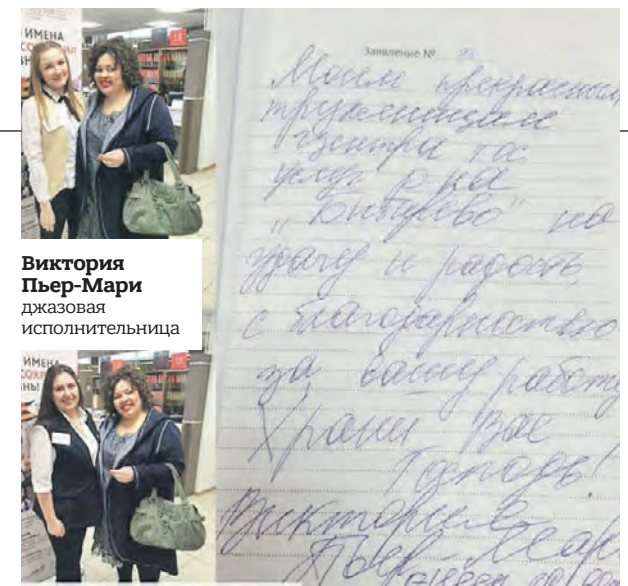 ИМЕНА
Виктория
Пьер-Мари
джазовая
исполнительница
ИМЕНА
Заявление №
Моим прекрасным
труженицам
центра гос
услуг р-на
"Бибирево" на
удачу и радость,
с благодарностью
за вашу работу
Храни Вас
Господь!
Виктория
Пьер-Мари